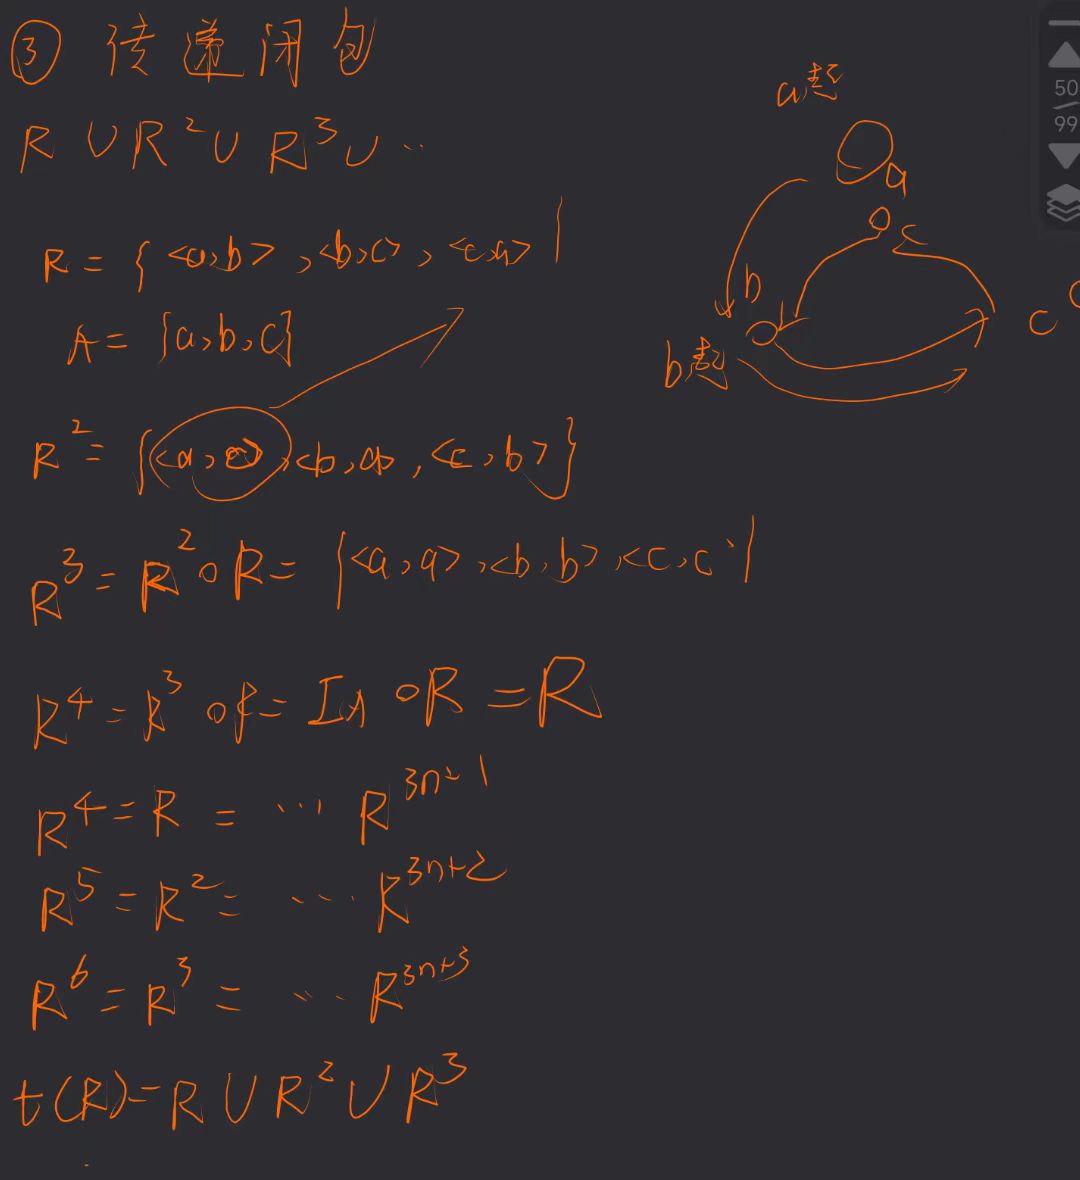 ③ 传递闭包
R ∪ R² ∪ R³ ∪ ...
R = { <a,b> , <b,c> , <c,a> }
A = {a,b,c}
R² = {<a,c>, <b,a>, <c,b>}
R³ = R² ∘ R = {<a,a>, <b,b>, <c,c>}
R⁴ = R³ ∘ R = I_A ∘ R = R
R⁴ = R = ... R³ⁿ⁺¹
R⁵ = R² = ... R³ⁿ⁺²
R⁶ = R³ = ... R³ⁿ⁺³
t(R) = R ∪ R² ∪ R³
a起
a
b
c
b起
50
99